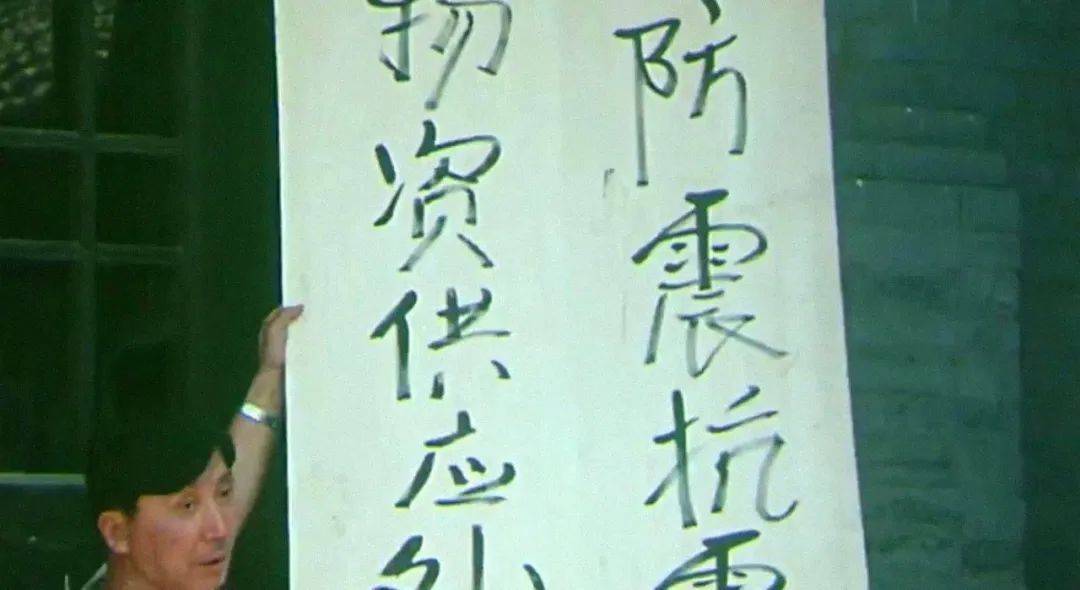 防震抗
物资供应